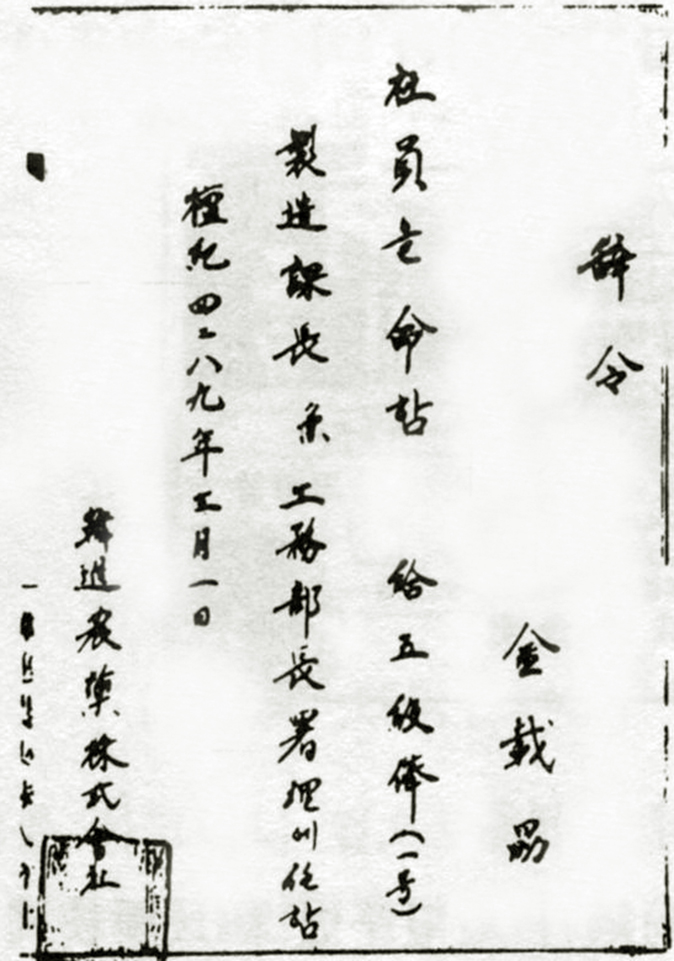 辭令
金載
社員을 命함 給五級俸(一号)
製造課長 兼 工務部長署理에 任함
檀紀四二八九年五月一日
農藥株式會社